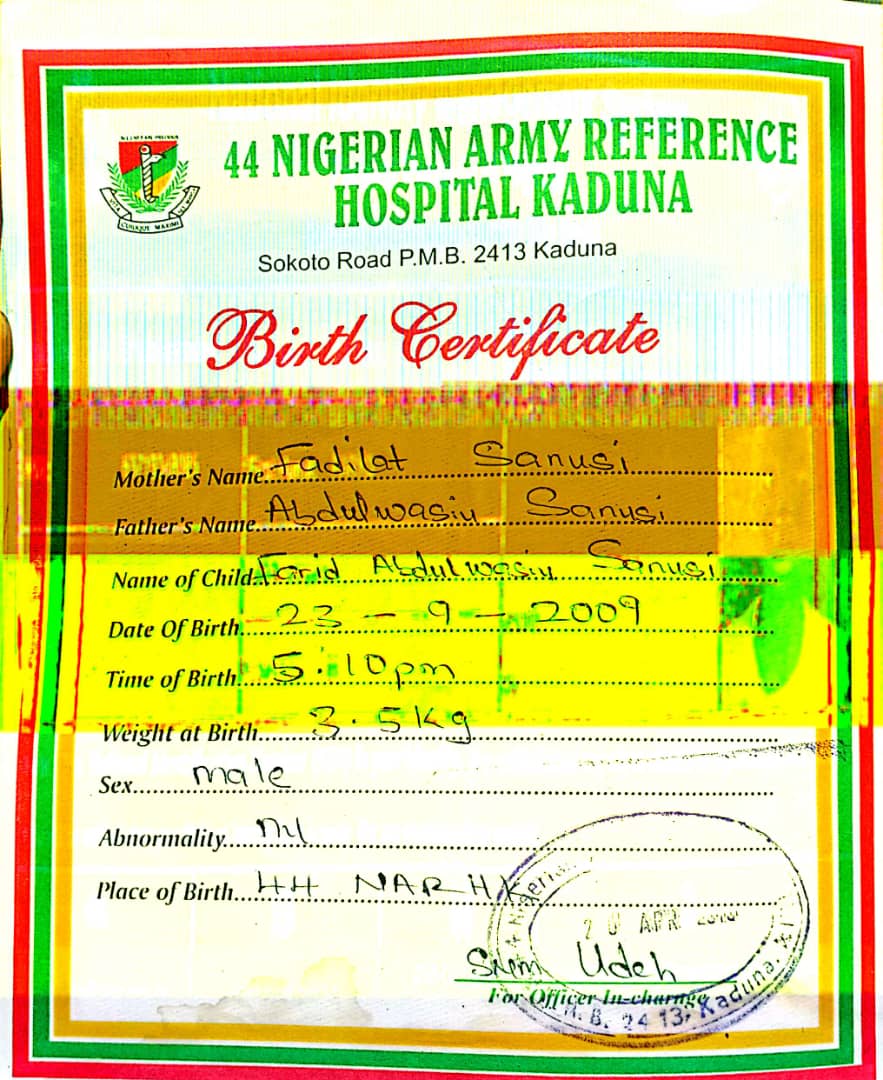 44 NIGERIAN ARMY REFERENCE
HOSPITAL KADUNA
Sokoto Road P.M.B. 2413 Kaduna
Birth Certificate
Mother's Name Fadilat Sanusi
Father's Name Abdulwasiu Sanusi
Name of Child Farid Abdulwasiu Sanusi
Date Of Birth 23 - 9 - 2009
Time of Birth 5:10pm
Weight at Birth 3.5kg
Sex male
Abnormality Nil
Place of Birth 44 NARHK
APR
Udeh
For Officer In-charnge
2413, Kaduna.